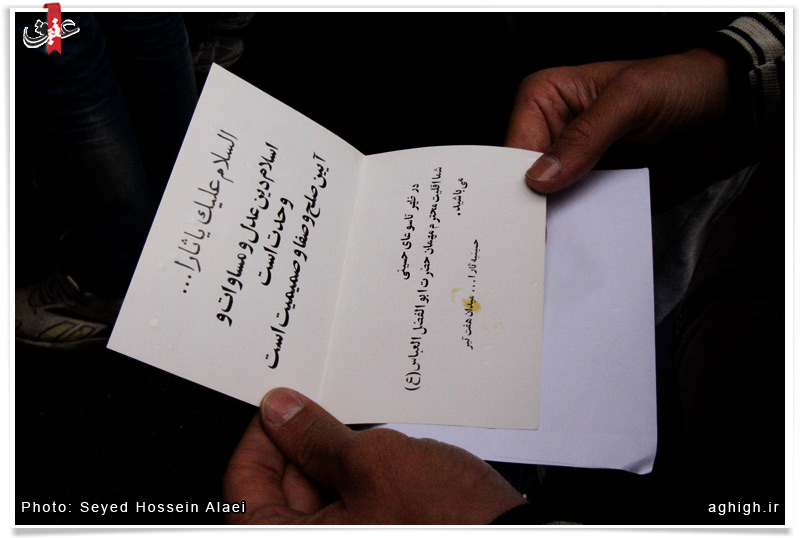 عقیق
السلام علیك یا ثارا...
اسلام دین عدل و مساوات و
وحدت است
آیین صلح و صفا و صمیمیت است
در ظهر تاسوعای حسینی
شما اقلیت محترم مهمان حضرت ابوالفضل العباس(ع)
می باشید.
حسینیه ثارا... میدان هفت تیر
Photo: Seyed Hossein Alaei
aghigh.ir